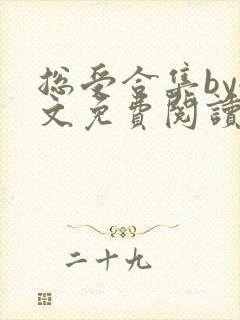 总受合集by
文免費閱讀
二十九